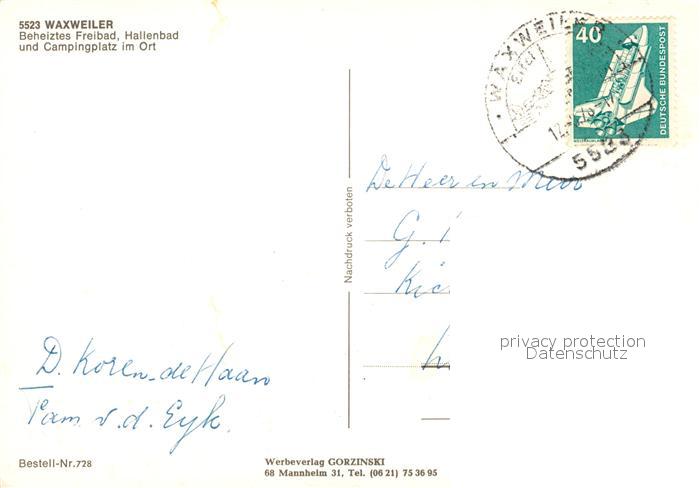 5523 WAXWEILER
Beheiztes Freibad, Hallenbad
und Campingplatz im Ort
WAXWEILER
Eifel
5523
40
DEUTSCHE BUNDESPOST
Nachdruck verboten
De Heer en Mevr
G.
privacy protection
Datenschutz
D. Koren-de Haan
Fam v.d. Eyk.
Bestell-Nr.728
Werbeverlag GORZINSKI
68 Mannheim 31, Tel. (06 21) 75 36 95